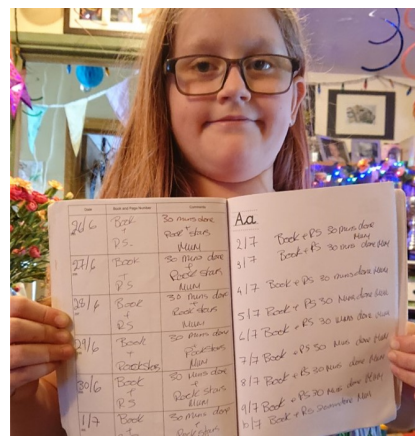 Date Book and Page Number Comments
26/6 Book + RS 30 mins done + Rock stars Mum
27/6 Book + RS 30 mins done + Rock stars Mum
28/6 Book + RS 30 mins done + Rock stars Mum
29/6 Book + Rockstars 30 mins done + Rockstars Mum
30/6 Book + RS 30 mins done + Rock stars Mum
1/7 Book + RS 30 mins done + Rock stars
Aa
2/7 Book + RS 30 mins done Mum
3/7 Book + RS 30 mins done Mum
4/7 Book + RS 30 mins done Mum
5/7 Book + RS 30 mins done Mum
6/7 Book + RS 30 mins done Mum
7/7 Book + RS 30 mins done Mum
8/7 Book + RS 30 mins done Mum
9/7 Book + RS 30 mins done Mum
Book + RS Mum